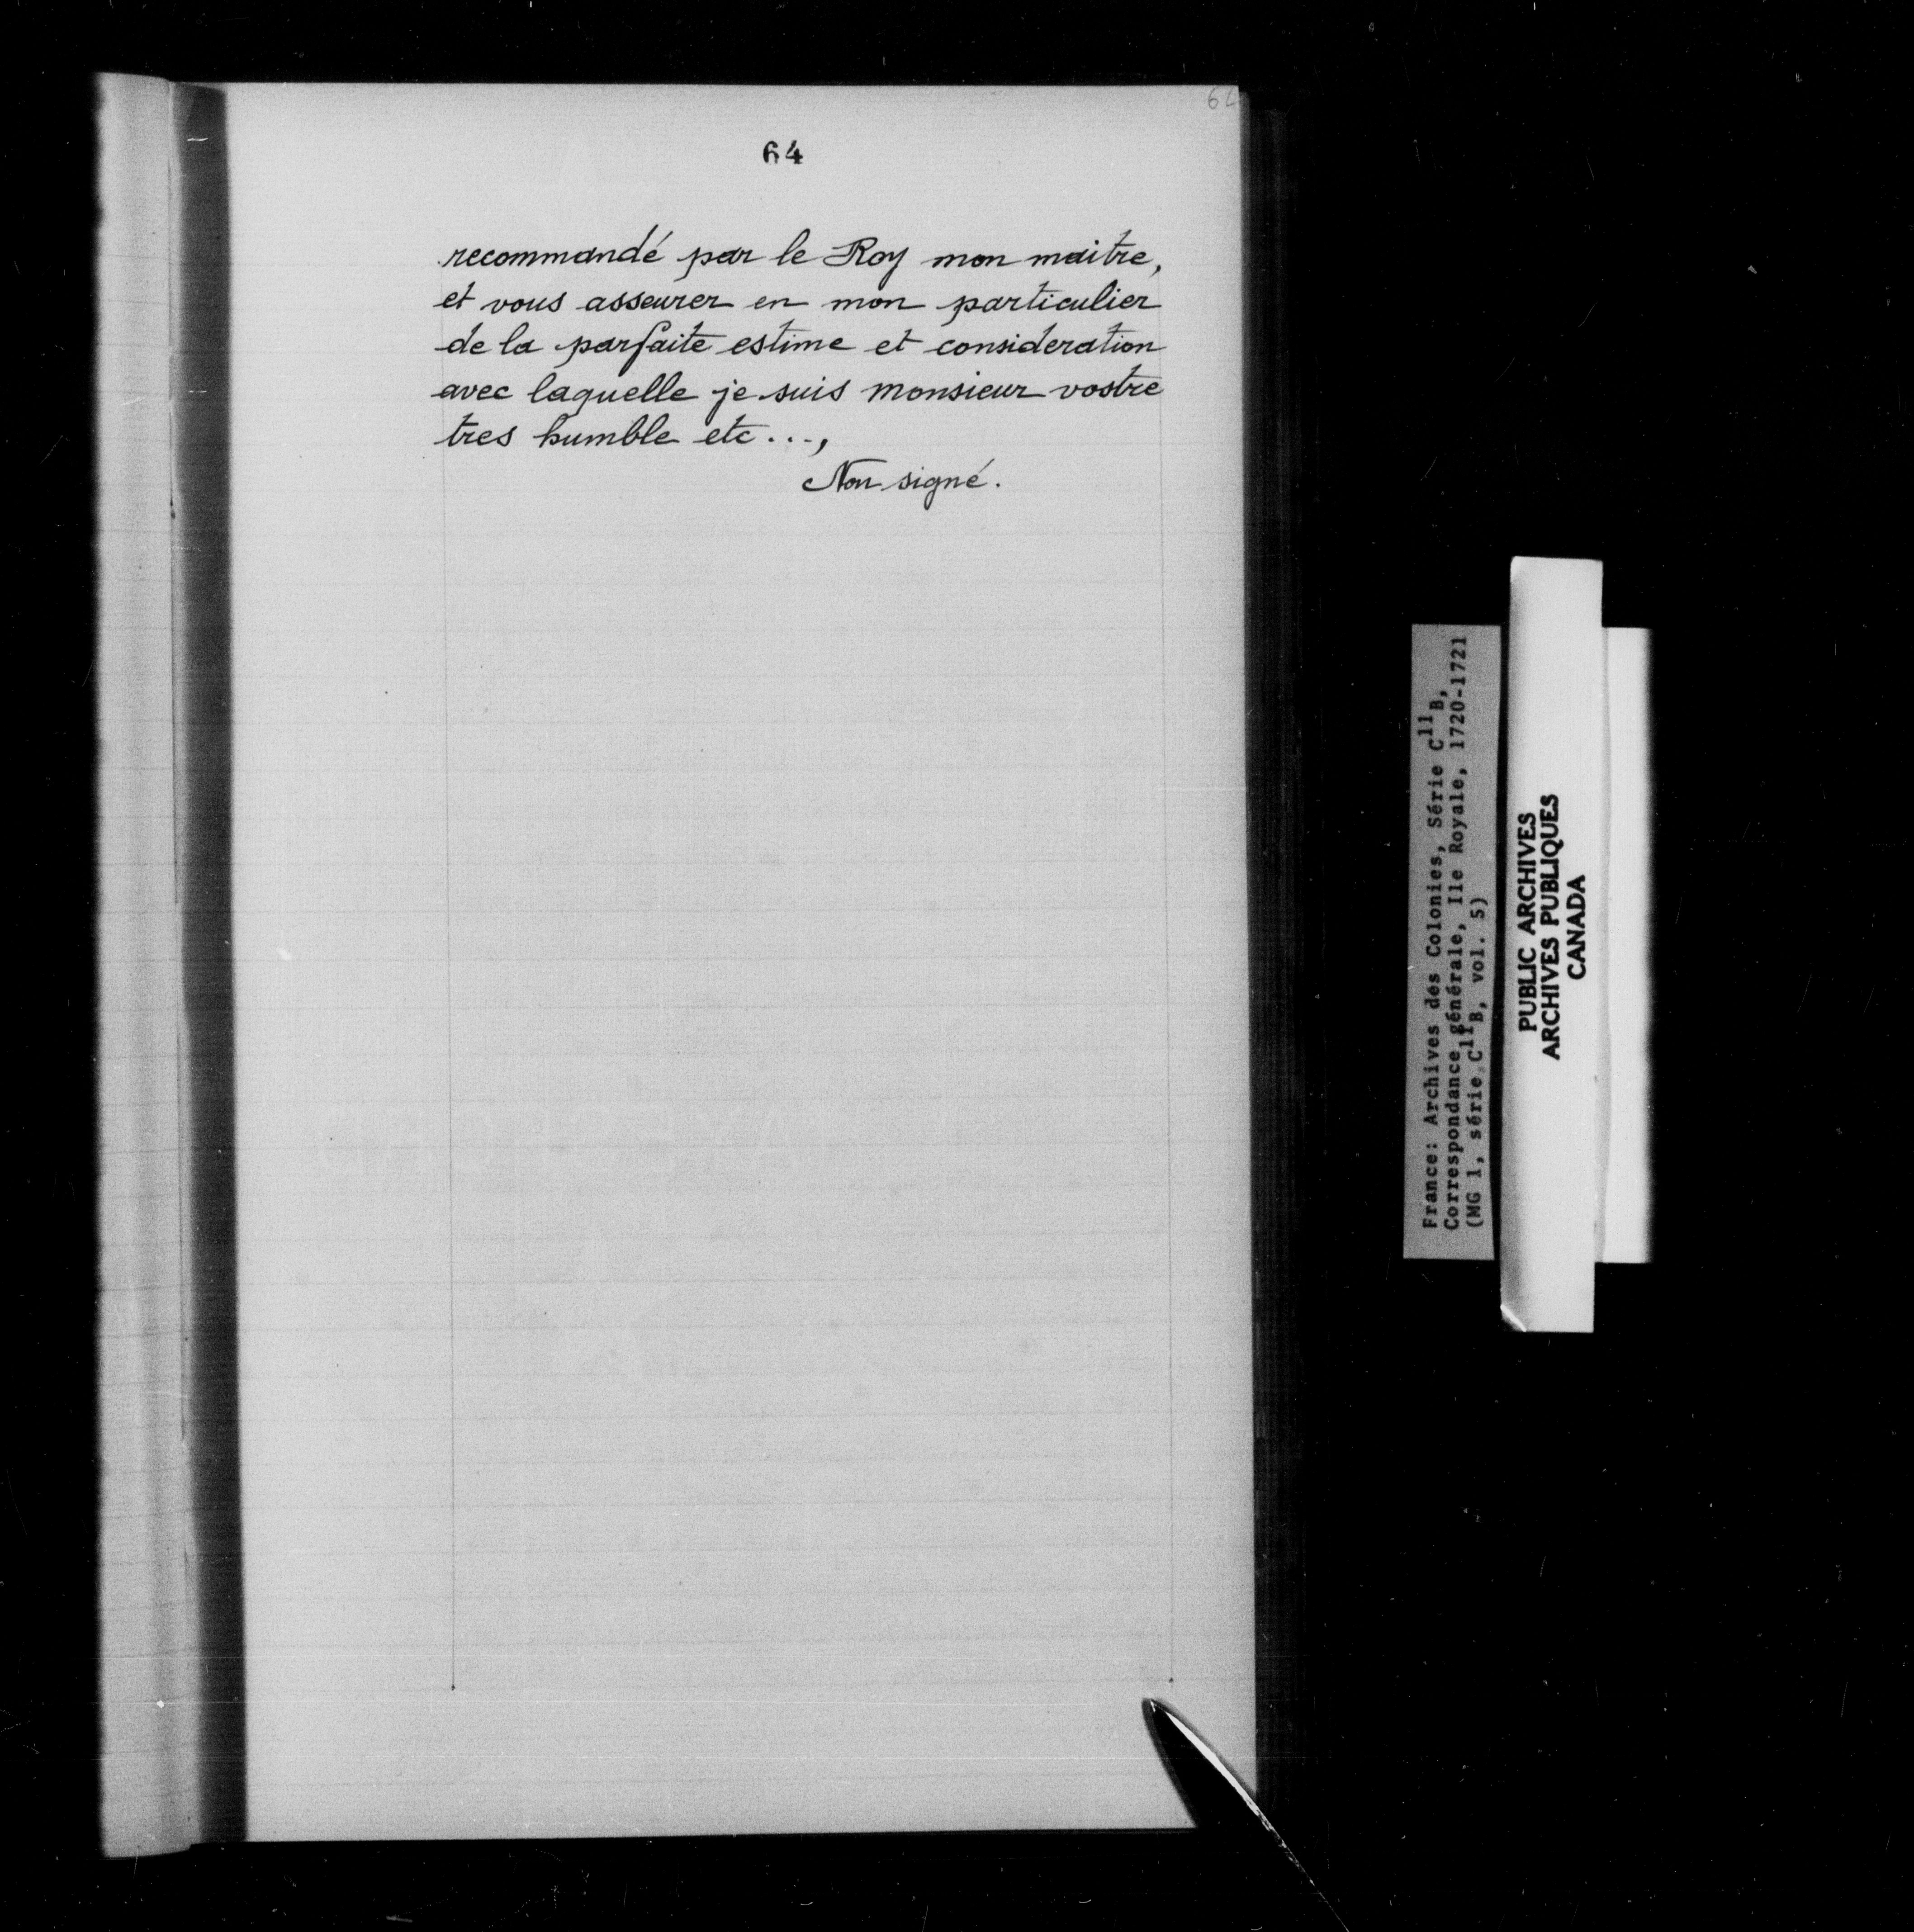 64
64
recommandé par le Roy mon maitre,
et vous asseurer en mon particulier
de la parfaite estime et consideration
avec laquelle je suis monsieur vostre
tres humble etc...,
Non signé.
France: Archives des Colonies, Série C11B,
Correspondance générale, Ile Royale, 1720-1721
(MG 1, série C11B, vol. 5)
PUBLIC ARCHIVES
ARCHIVES PUBLIQUES
CANADA